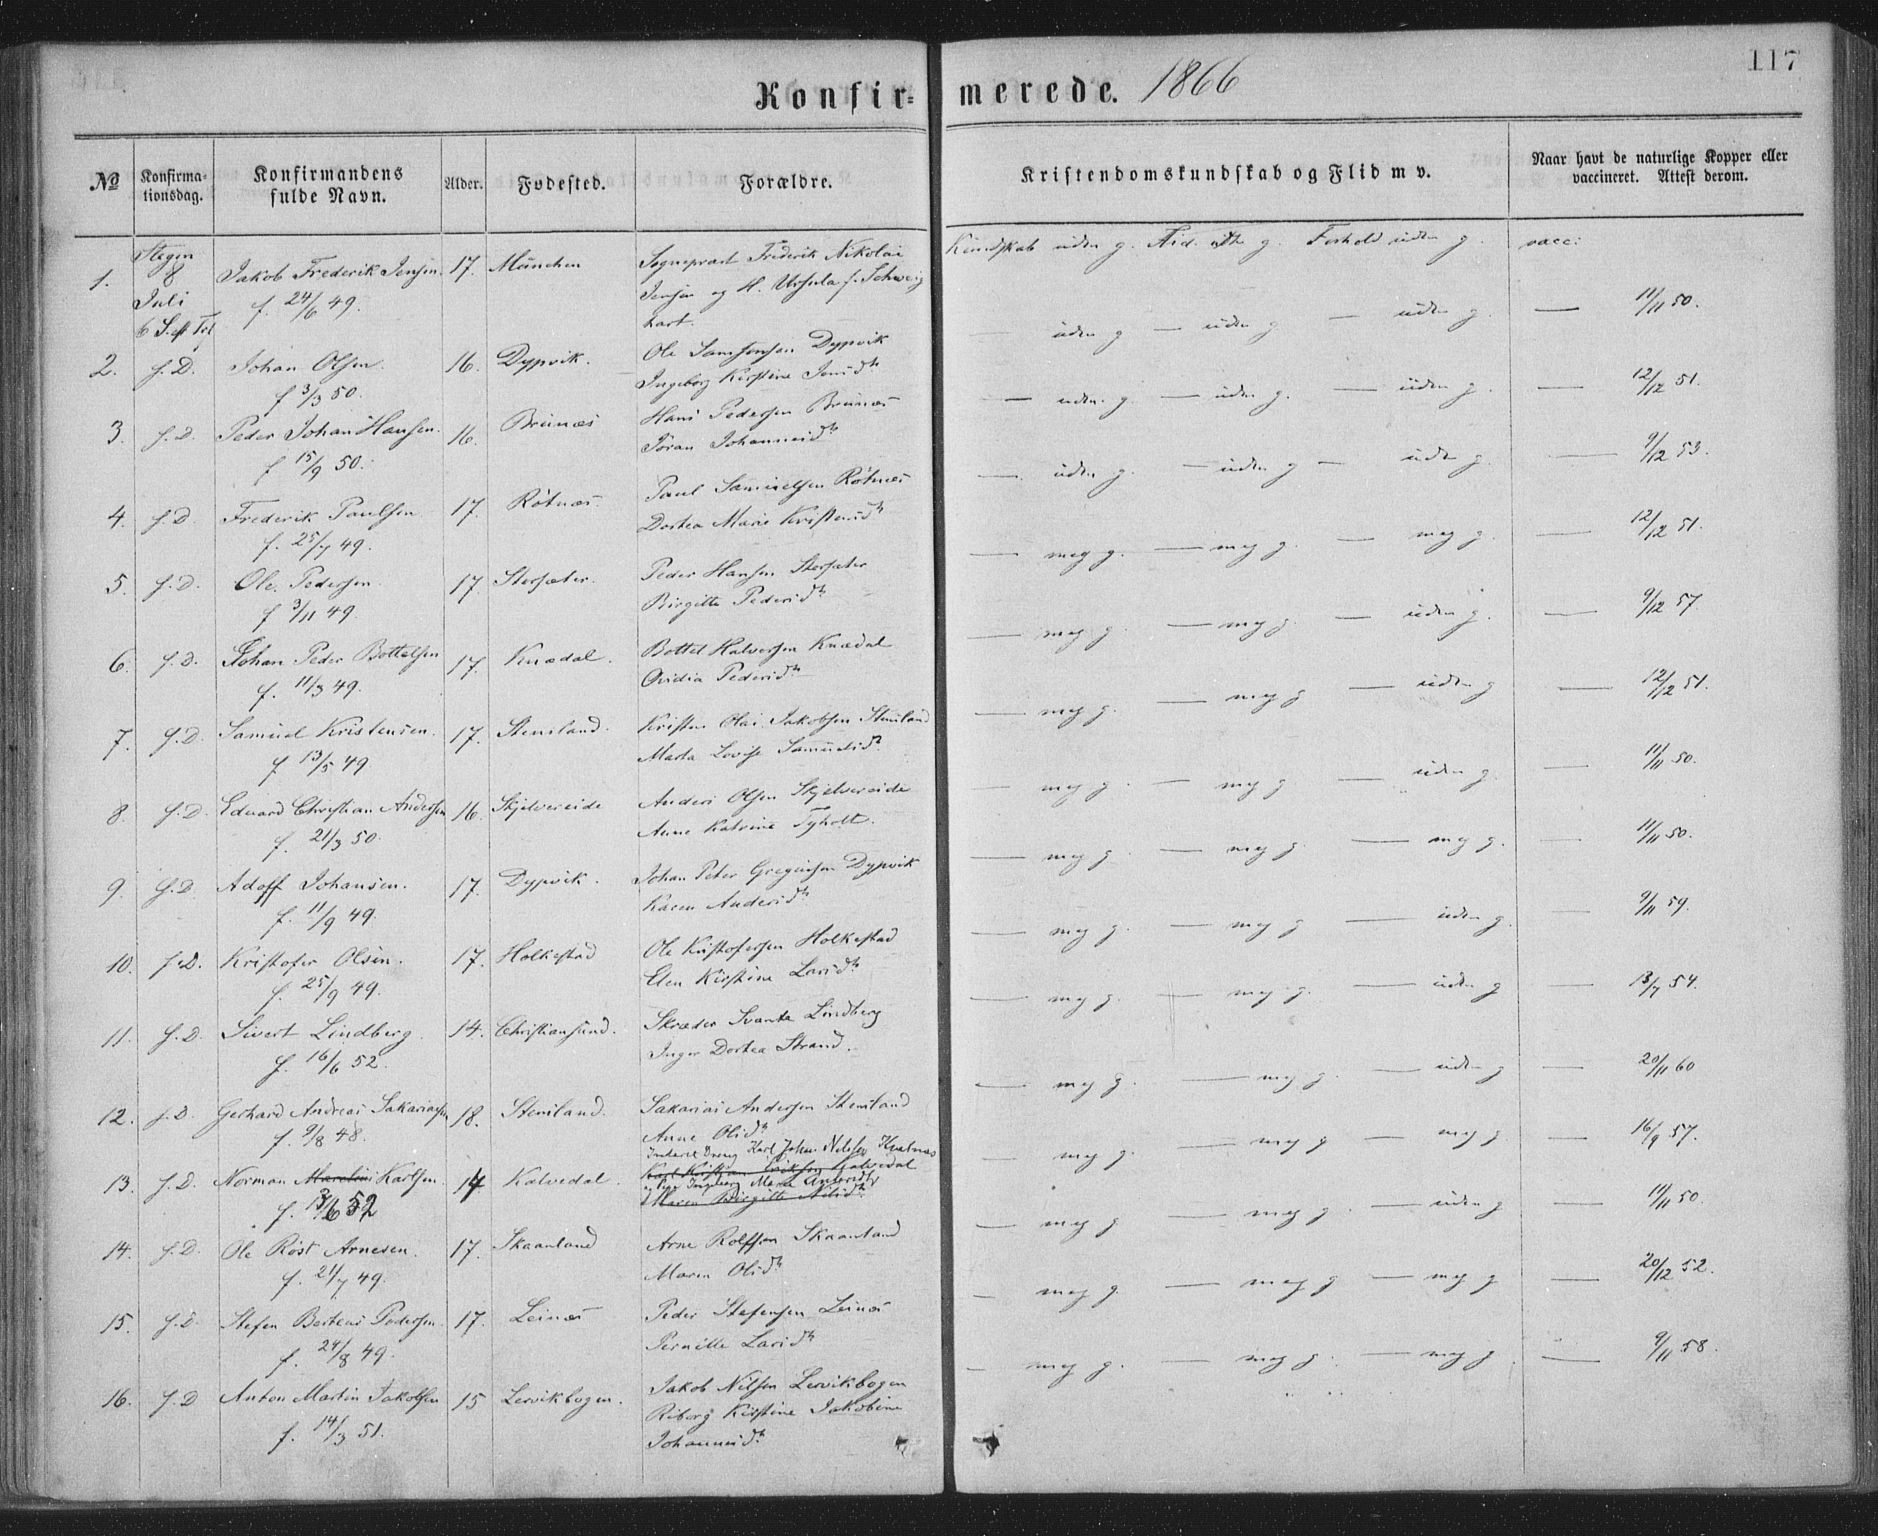 117
Konfirmerede. 1866
№ Konfirmationsdag. Konfirmandens fulde Navn. Alder. Fødested. Forældre. Kristendomskundskab og Flid m v. Naar havt de naturlige Kopper eller vaccineret. Attest derom.
1. Stegen 8 Juli 6 S. eft Tref Jakob Frederik Jensen. f. 24/6 49. 17. München Sognepræst Frederik Nikolai
Jensen og H. Ursula f. Schweig
hart. Kundskab uden g. Flid. uden g. Forhold uden g. vacc: 11/11 50.
2. s. D. Johan Olsen. f 3/3 50. 16. Dypvik. Ole Samsonsen Dypvik
Ingeborg Kirstine Jensdtr — uden g — uden g — uden g. — 12/12 51.
3. s. D. Peder Johan Hansen. f 15/9 50. 16. Brunæs Hans Pedersen Brunæs
Johannesdtr — uden g. — uden g. — uden g. — 9/12 53.
4. s. D. Frederik Paulsen f. 25/7 49. 17. Røtnæs Paul Samuelsen Røtnæs
Dortea Marie Kristensdtr — uden g. — uden g — uden g. — 12/12 51.
5. s. D. Ole Pedersen. f 3/11 49. 17. Storsæter. Peder Hansen Storsæter
Birgitte Pedersdtr — meg g. — meg g. — meg g. — 9/12 57
6. s. D. Johan Peder Bottolfsen f. 11/3 49. 17. Knædal. Bottel Halvorsen Knædal
Ovidia Pedersdtr — meg g. — meg g. — uden g. — 12/12 51.
7. s. D. Samuel Kristensen. f 13/5 49. 17. Stensland. Kristen Olai Jakobsen Stensland
Marta Lovise Samuelsdtr — meg g. — meg g — uden g — 11/11 50.
8. s. D. Edvard Christian Andersen f. 21/3 50. 16. Skjelvereide Anders Olsen Skjelvereide
Anne Katrine Tyholt. — meg g. — meg g — uden g. — 11/11 50.
9. s. D. Adolf Johansen. f. 11/9 49. 17. Dypvik. Johan Peter Gregersen Dypvik
Karen Andersdtr — meg g. — meg g. — meg g. — 9/11 59.
10. s. D. Kristofer Olsen. f. 25/9 49. 17. Holkestad Ole Kristofersen Holkestad
Elen Kirstine Larsdtr — meg g. — meg g. — uden g. — 13/7 54.
11. s. D. Sivert Lindberg. f. 16/6 52. 14. Christiansund. Skræder Svante Lindberg
Inger Dortea Strand. — meg g. — meg g. — uden g — 20/11 60
12. s. D. Gerhard Andreas Sakariasen f. 9/8 48. 18. Stensland. Sakarias Andersen Stensland
Anne Olsdtr — meg g. — meg g. — uden g — 16/9 57.
13. s. D. Norman Karlsen. f. 13/6 52 14 Kalvedal. Inderst Dreng Karl Johan Nilsen Hvalnes
Karl Kristian Eriksen Kalvedal
og Pige Ingeborg Marie
Maren Birgitte Nilsdtr — meg g. — meg g — meg g — 11/11 50.
14. s. D. Ole Røst Arnesen. f. 21/7 49. 17. Skaanland Arne Rolfsen Skaanland
Maren Olsdtr — meg g — meg g. — uden g — 20/12 52.
15. s. D. Stefen Berteus Pedersen. f. 24/8 49. 17. Leinæs Peder Stefensen Leinæs
Pernille Larsdtr — meg g. — meg g — meg g — 9/11 58.
16. s. D Anton Martin Jakobsen f. 14/3 51. 15 Lervikbogen. Jakob Nilsen Lervikbogen
Riborg Kirstine Jakobine
Johannesdtr — meg g. — meg g. — meg g